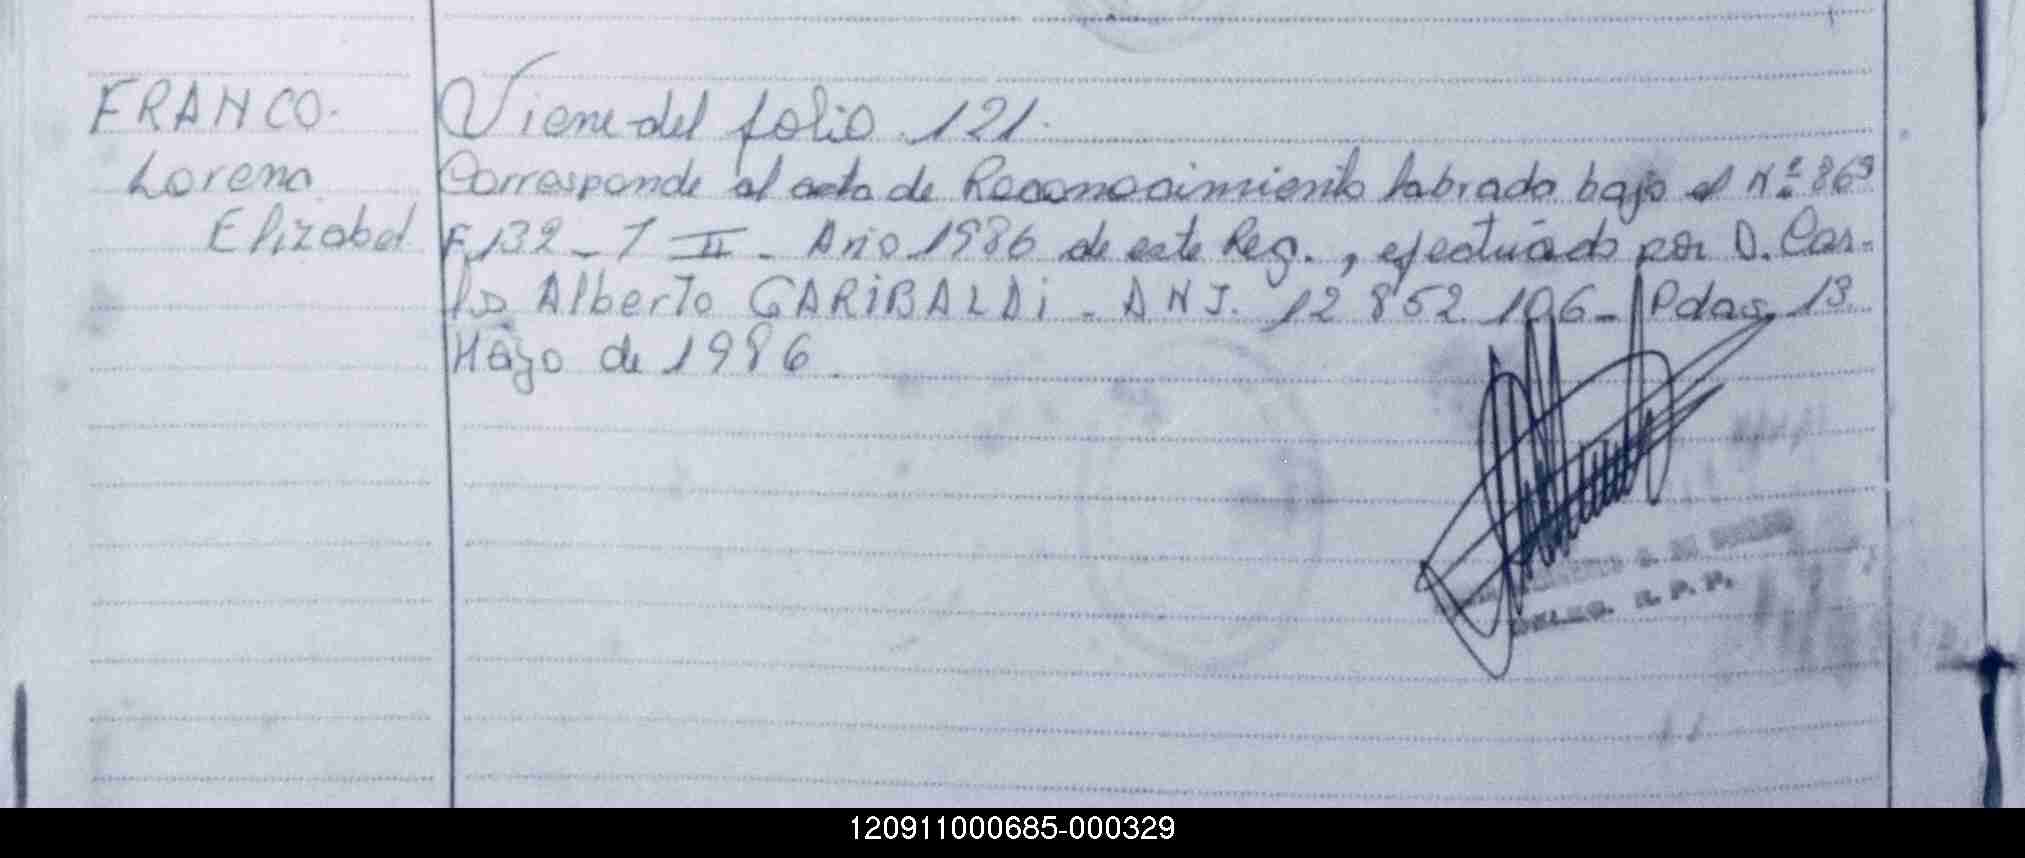 FRANCO.
Lorena
Elizabet
Viene del folio 121.
Corresponde al acta de Reconocimiento labrado bajo el Nº 869
F. 132 - T II - Año 1986 de este Reg., efectuado por D. Car-
los Alberto GARIBALDI - DNI. 12 852 106 - Pdas. 13
Mayo de 1986
DELEG. R. P. P.
120911000685-000329